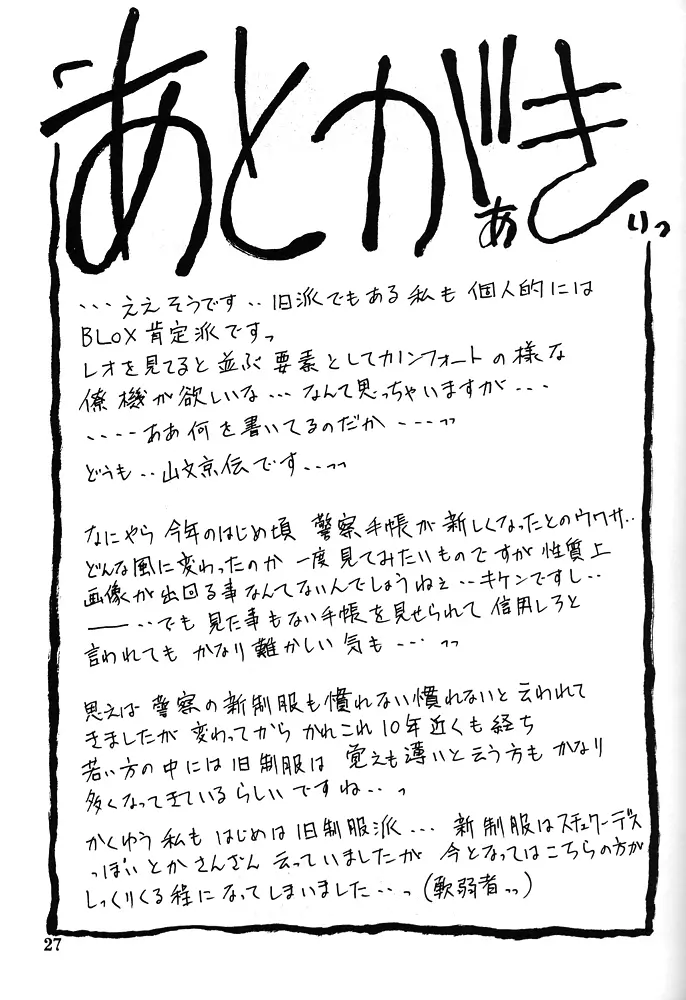 あとがきぃっ
・・・ええそうです・・旧派でもある私も 個人的には
BLOX肯定派ですっ
レオを見てると並ぶ要素としてカノンフォートの様な
僚機が欲しいな・・・なんて思っちゃいますが・・・
・・・・ああ何を書いてるのだか ・・・っっ
どうも・・山文京伝です・・っっ
なにやら 今年のはじめ頃 警察手帳が新しくなったとのウワサ・・
どんな風に変わったのか 一度見てみたいものですが 性質上
画像が出回る事なんてないんでしょうねぇ・・キケンですし・・
――・・でも 見た事もない手帳を見せられて 信用しろと
言われても かなり難かしい 気も・・・ っっ
思えば 警察の新制服も慣れない慣れないと 云われて
きましたが 変わってから かれこれ10年近くも経ち
若い方の中には旧制服は 覚えも薄いと云う方も かなり
多くなってきているらしいですね・・っ
かくゆう私も はじめは旧制服派・・・ 新制服はスチュワーデス
っぽいとかさんざん云っていましたが 今となってはこちらの方が
しっくりくる程になってしまいました・・っ(軟弱者っっ)
27